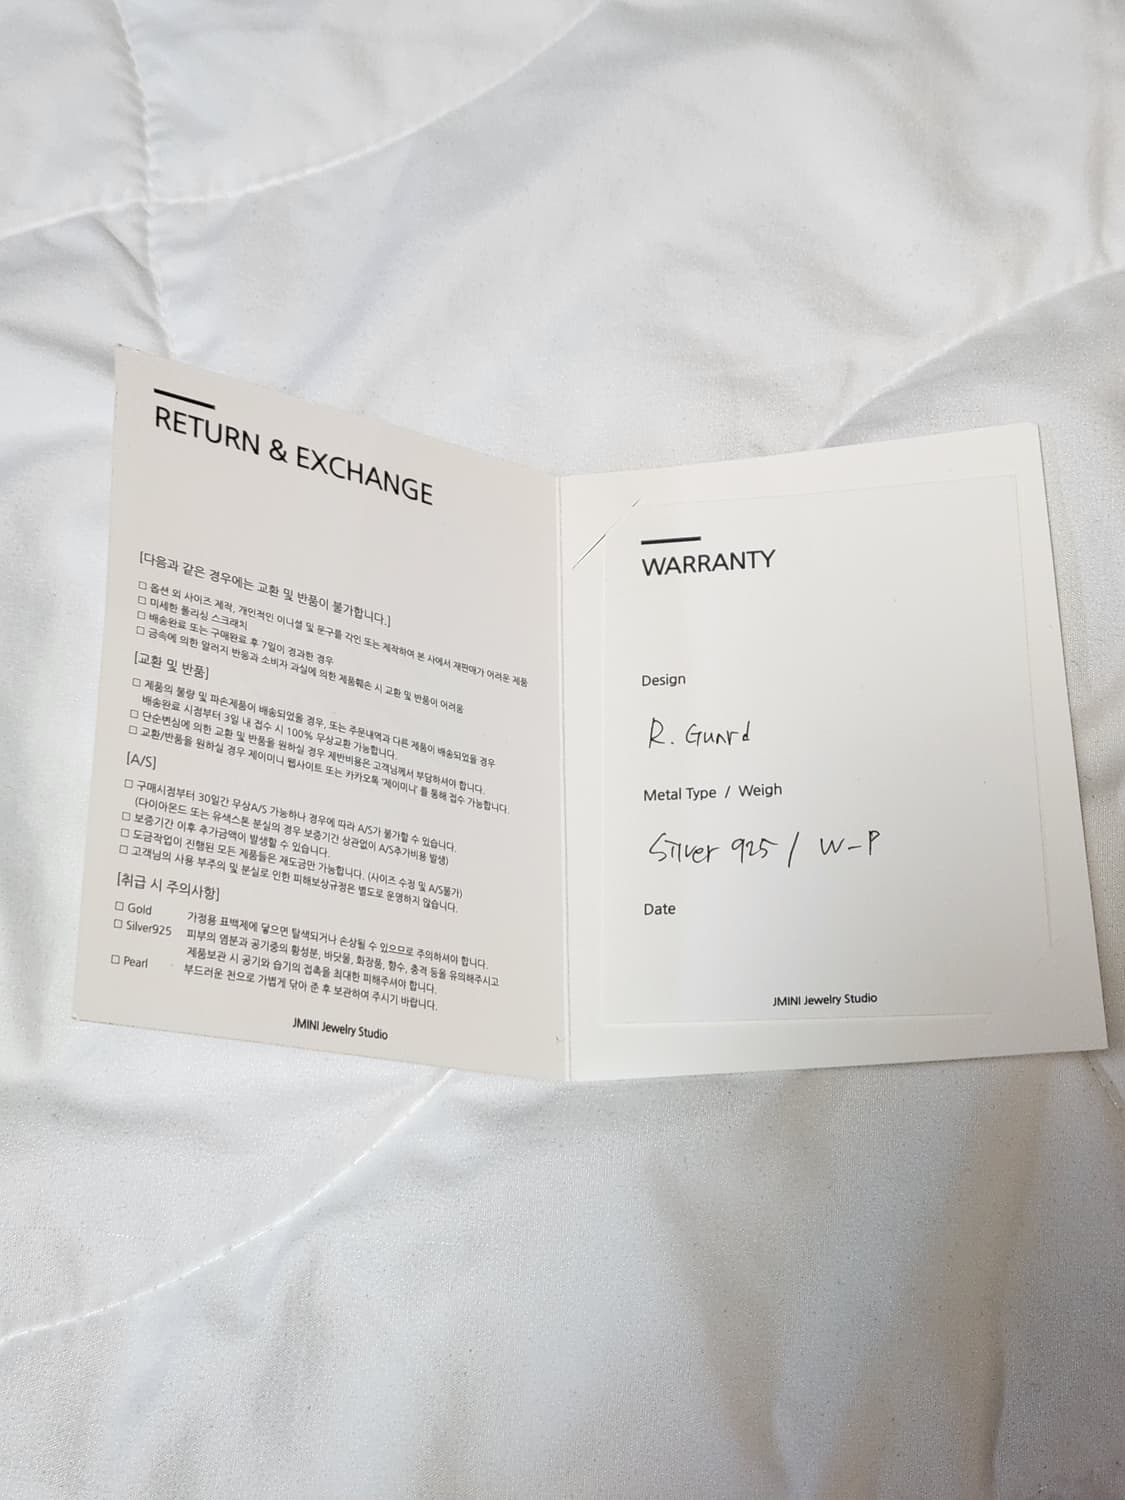 RETURN & EXCHANGE
[다음과 같은 경우에는 교환 및 반품이 불가합니다.]
□ 옵션 외 사이즈 제작, 개인적인 이니셜 및 문구를 각인 또는 제작하여 본 사에서 재판매가 어려운 제품
□ 미세한 폴리싱 스크래치
□ 배송완료 또는 구매완료 후 7일이 경과한 경우
□ 금속에 의한 알러지 반응과 소비자 과실에 의한 제품훼손 시 교환 및 반품이 어려움
[교환 및 반품]
□ 제품의 불량 및 파손제품이 배송되었을 경우, 또는 주문내역과 다른 제품이 배송되었을 경우
배송완료 시점부터 3일 내 접수 시 100% 무상교환 가능합니다.
□ 단순변심에 의한 교환 및 반품을 원하실 경우 제반비용은 고객님께서 부담하셔야 합니다.
□ 교환/반품을 원하실 경우 제이미니 웹사이트 또는 카카오톡 '제이미니' 를 통해 접수 가능합니다.
[A/S]
□ 구매시점부터 30일간 무상A/S 가능하나 경우에 따라 A/S가 불가할 수 있습니다.
(다이아몬드 또는 유색스톤 분실의 경우 보증기간 상관없이 A/S추가비용 발생)
□ 보증기간 이후 추가금액이 발생할 수 있습니다.
□ 도금작업이 진행된 모든 제품들은 재도금만 가능합니다. (사이즈 수정 및 A/S불가)
□ 고객님의 사용 부주의 및 분실로 인한 피해보상규정은 별도로 운영하지 않습니다.
[취급 시 주의사항]
□ Gold 가정용 표백제에 닿으면 탈색되거나 손상될 수 있으므로 주의하셔야 합니다.
□ Silver925 피부의 염분과 공기중의 황성분, 바닷물, 화장품, 향수, 충격 등을 유의해주시고
제품보관 시 공기와 습기의 접촉을 최대한 피해주셔야 합니다.
□ Pearl 부드러운 천으로 가볍게 닦아 준 후 보관하여 주시기 바랍니다.
JMINI Jewelry Studio
WARRANTY
Design
R. Guard
Metal Type / Weigh
Silver 925 / W-P
Date
JMINI Jewelry Studio